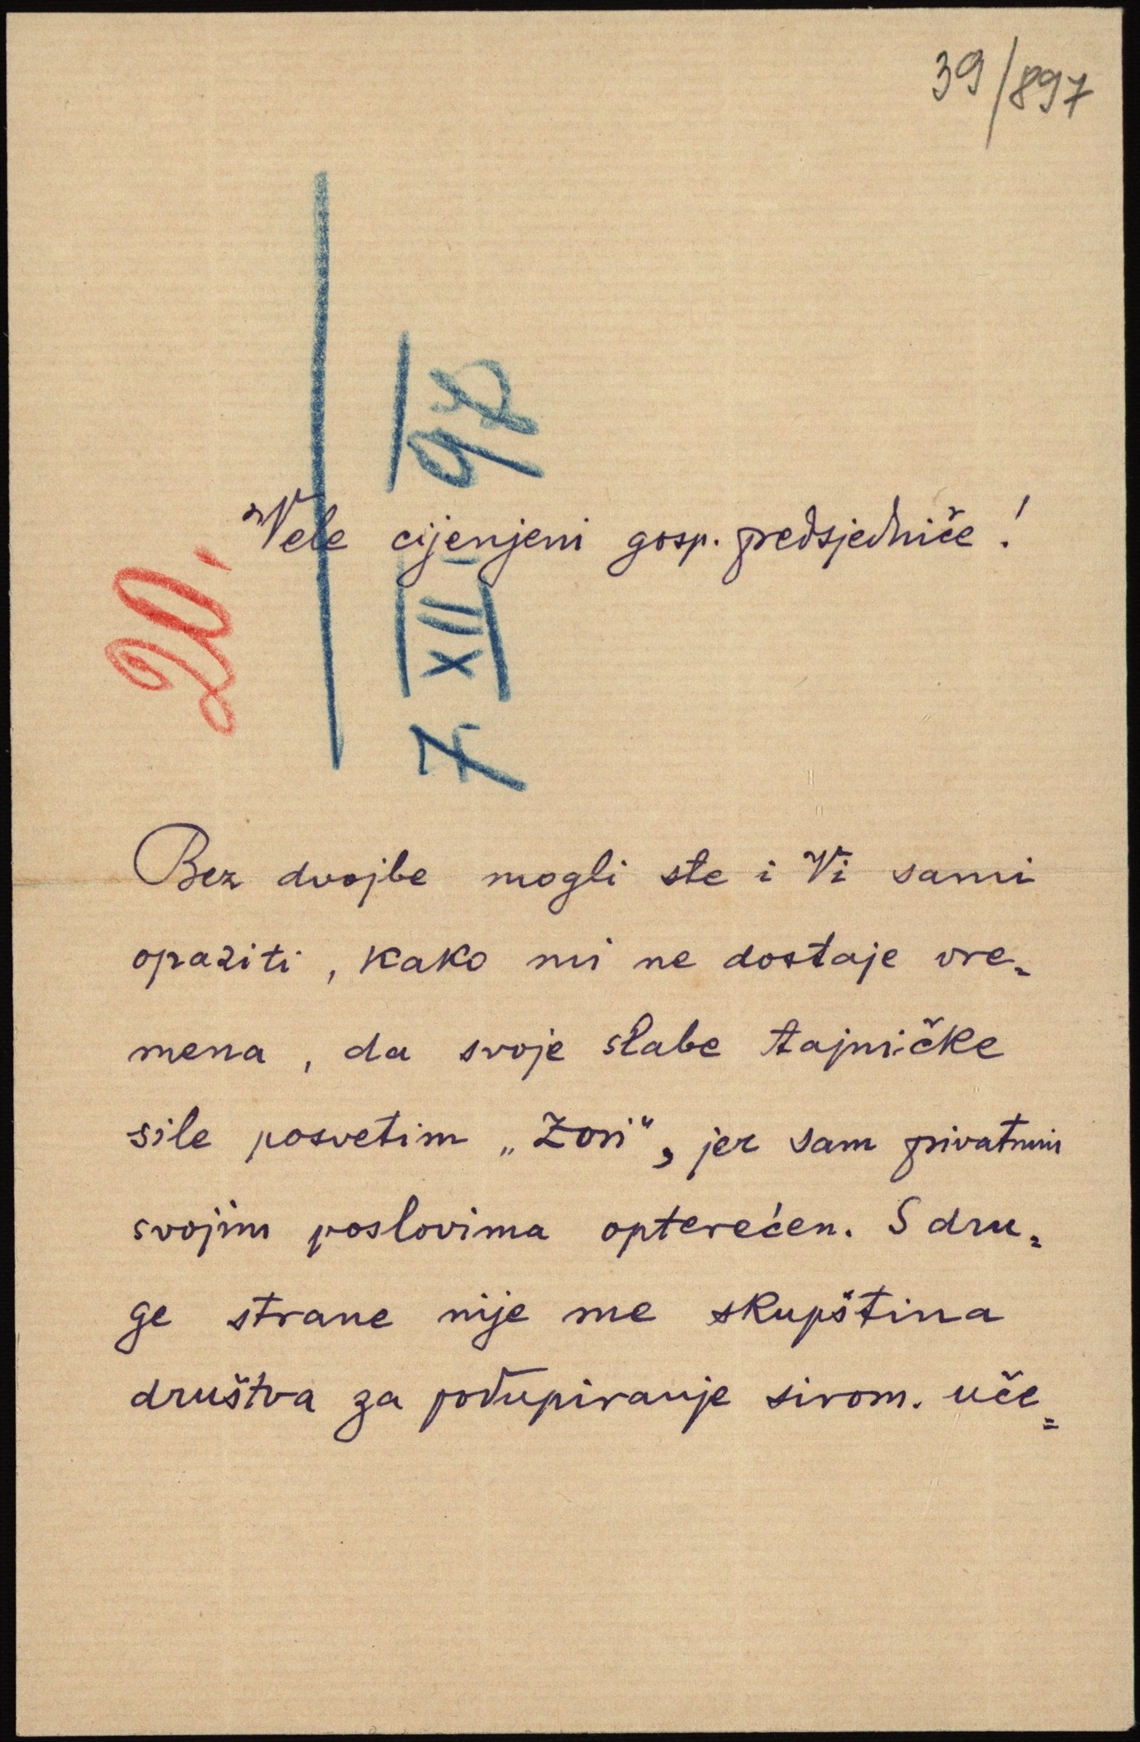 39/897
20.
7. XII 98
Vele cijenjeni gosp. predsjedniče!
Bez dvojbe mogli ste i Vi sami
opaziti, kako mi ne dostaje vre=
mena, da svoje slabe tajničke
sile posvetim „Zori“, jer sam privatnim
svojim poslovima opterećen. S dru=
ge strane nije me skupština
društva za podupiranje sirom. uče=